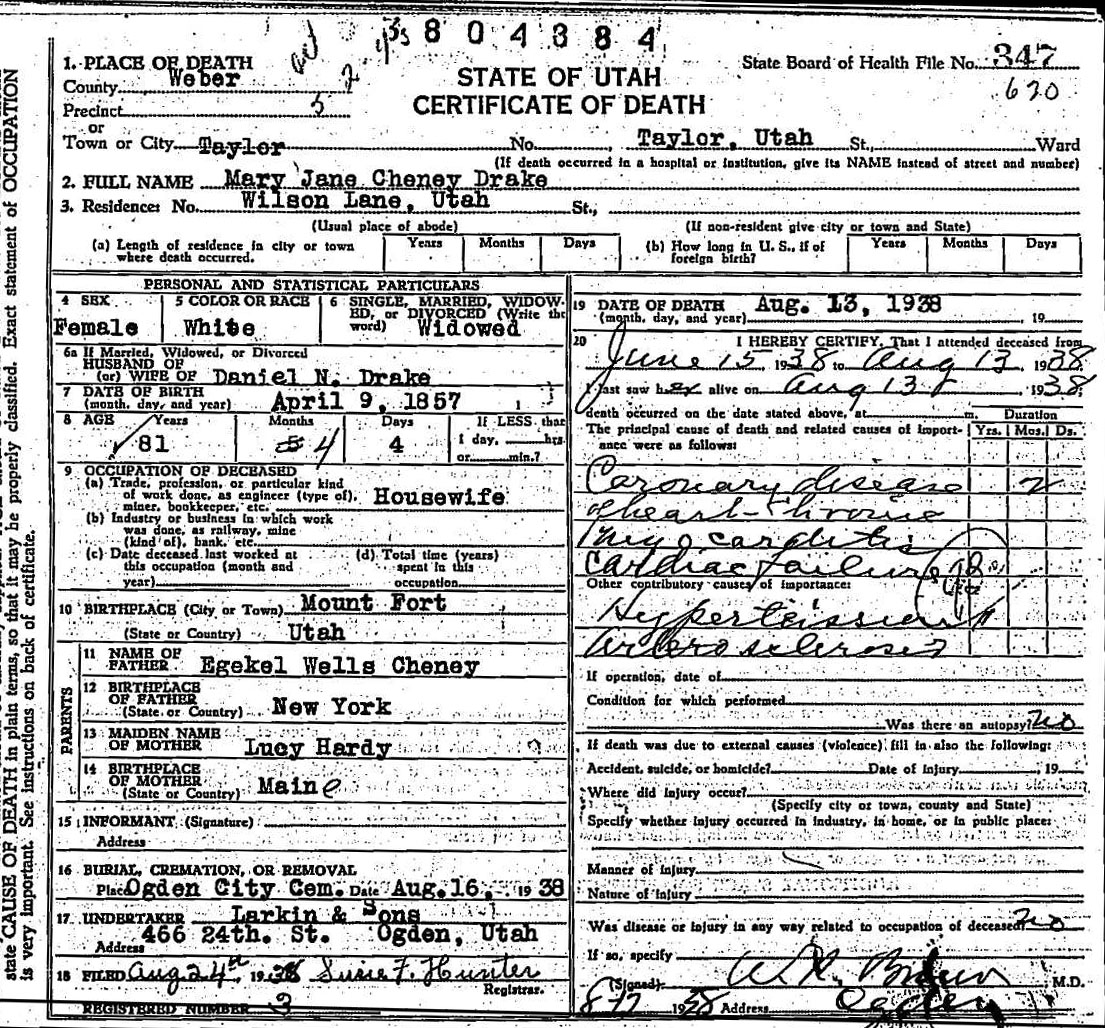 804384
1. PLACE OF DEATH
County Weber
Precinct 5
or
Town or City Taylor No. Taylor, Utah St., Ward
(If death occurred in a hospital or institution, give its NAME instead of street and number)
STATE OF UTAH
CERTIFICATE OF DEATH
State Board of Health File No. 347
620
2. FULL NAME Mary Jane Cheney Drake
3. Residence: No. Wilson Lane, Utah St.,
(Usual place of abode) (If non-resident give city or town and State)
(a) Length of residence in city or town where death occurred. Years Months Days
(b) How long in U. S., if of foreign birth? Years Months Days
PERSONAL AND STATISTICAL PARTICULARS
4 SEX
Female
5 COLOR OR RACE
White
6 SINGLE, MARRIED, WIDOW-
ED, or DIVORCED (Write the
word) Widowed
6a If Married, Widowed, or Divorced
HUSBAND OF
(or) WIFE OF Daniel N. Drake
7 DATE OF BIRTH
(month, day, and year) April 9, 1857
8 AGE Years Months Days If LESS than
81 5 4 4 1 day, hrs
or min.?
9 OCCUPATION OF DECEASED
(a) Trade, profession, or particular kind
of work done, as engineer (type of),
miner, bookkeeper, etc. Housewife
(b) Industry or business in which work
was done, as railway, mine
(kind of), bank, etc.
(c) Date deceased last worked at
this occupation (month and
year)
(d) Total time (years)
spent in this
occupation
10 BIRTHPLACE (City or Town) Mount Fort
(State or Country) Utah
PARENTS
11 NAME OF
FATHER Egekel Wells Cheney
12 BIRTHPLACE
OF FATHER
(State or Country) New York
13 MAIDEN NAME
OF MOTHER Lucy Hardy
14 BIRTHPLACE
OF MOTHER
(State or Country) Maine
15 INFORMANT (Signature)
Address
16 BURIAL, CREMATION, OR REMOVAL
Place Ogden City Cem. Date Aug. 16, 1938
17 UNDERTAKER Larkin & Sons
Address 466 24th. St. Ogden, Utah
18 FILED Aug 24th 1938 Susie F. Hunter
Registrar.
REGISTERED NUMBER 3
19 DATE OF DEATH Aug. 13, 1938
(month, day, and year) 19
20 I HEREBY CERTIFY, That I attended deceased from
June 15 1938 to Aug 13 1938.
I last saw her alive on Aug 13 1938,
death occurred on the date stated above, at m.
The principal cause of death and related causes of import-
ance were as follows:
Duration
Yrs. Mos. Ds.
Coronary disease 2
of heart
Myocarditis
Cardiac failure
Other contributory causes of importance:
Hypertension
Arterosclerosis
If operation, date of
Condition for which performed
Was there an autopsy? no
If death was due to external causes (violence) fill in also the following:
Accident, suicide, or homicide? Date of injury 19
Where did injury occur?
(Specify city or town, county and State)
Specify whether injury occurred in industry, in home, or in public place:
Manner of injury
Nature of injury
Was disease or injury in any way related to occupation of deceased? no
If so, specify
(Signed) M.D.
1938 Address Ogden
state CAUSE OF DEATH in plain terms, so that it may be properly classified. Exact statement of OCCUPATION
is very important. See instructions on back of certificate.